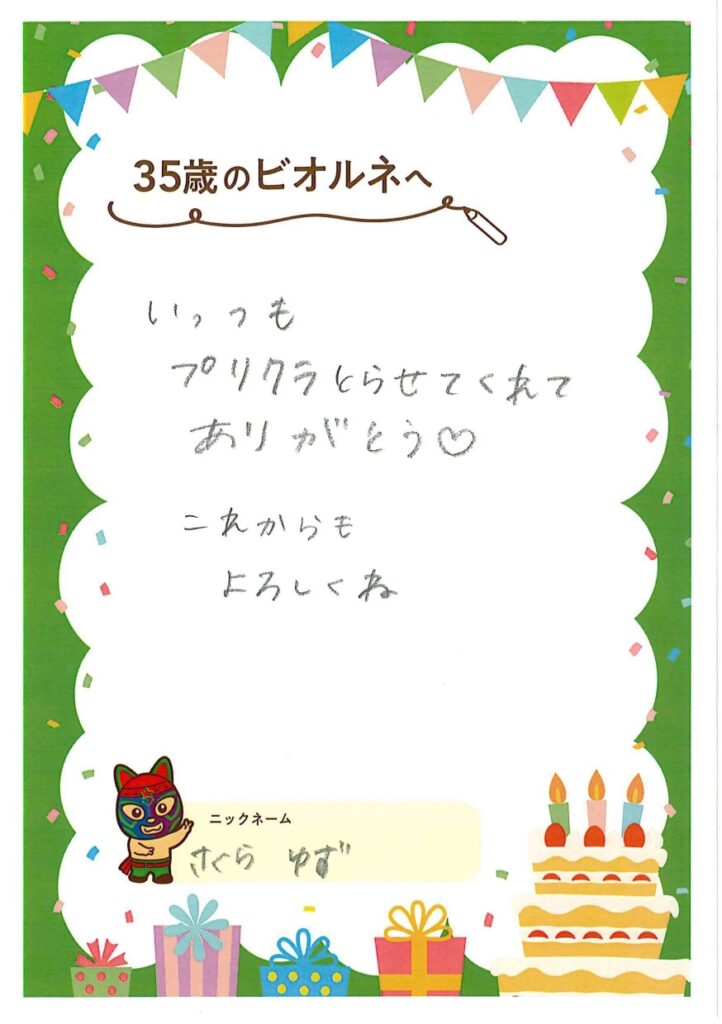 35歳のビオルネへ
いっつも
プリクラとらせてくれて
ありがとう♡
これからも
よろしくね
ニックネーム
さくら ゆず